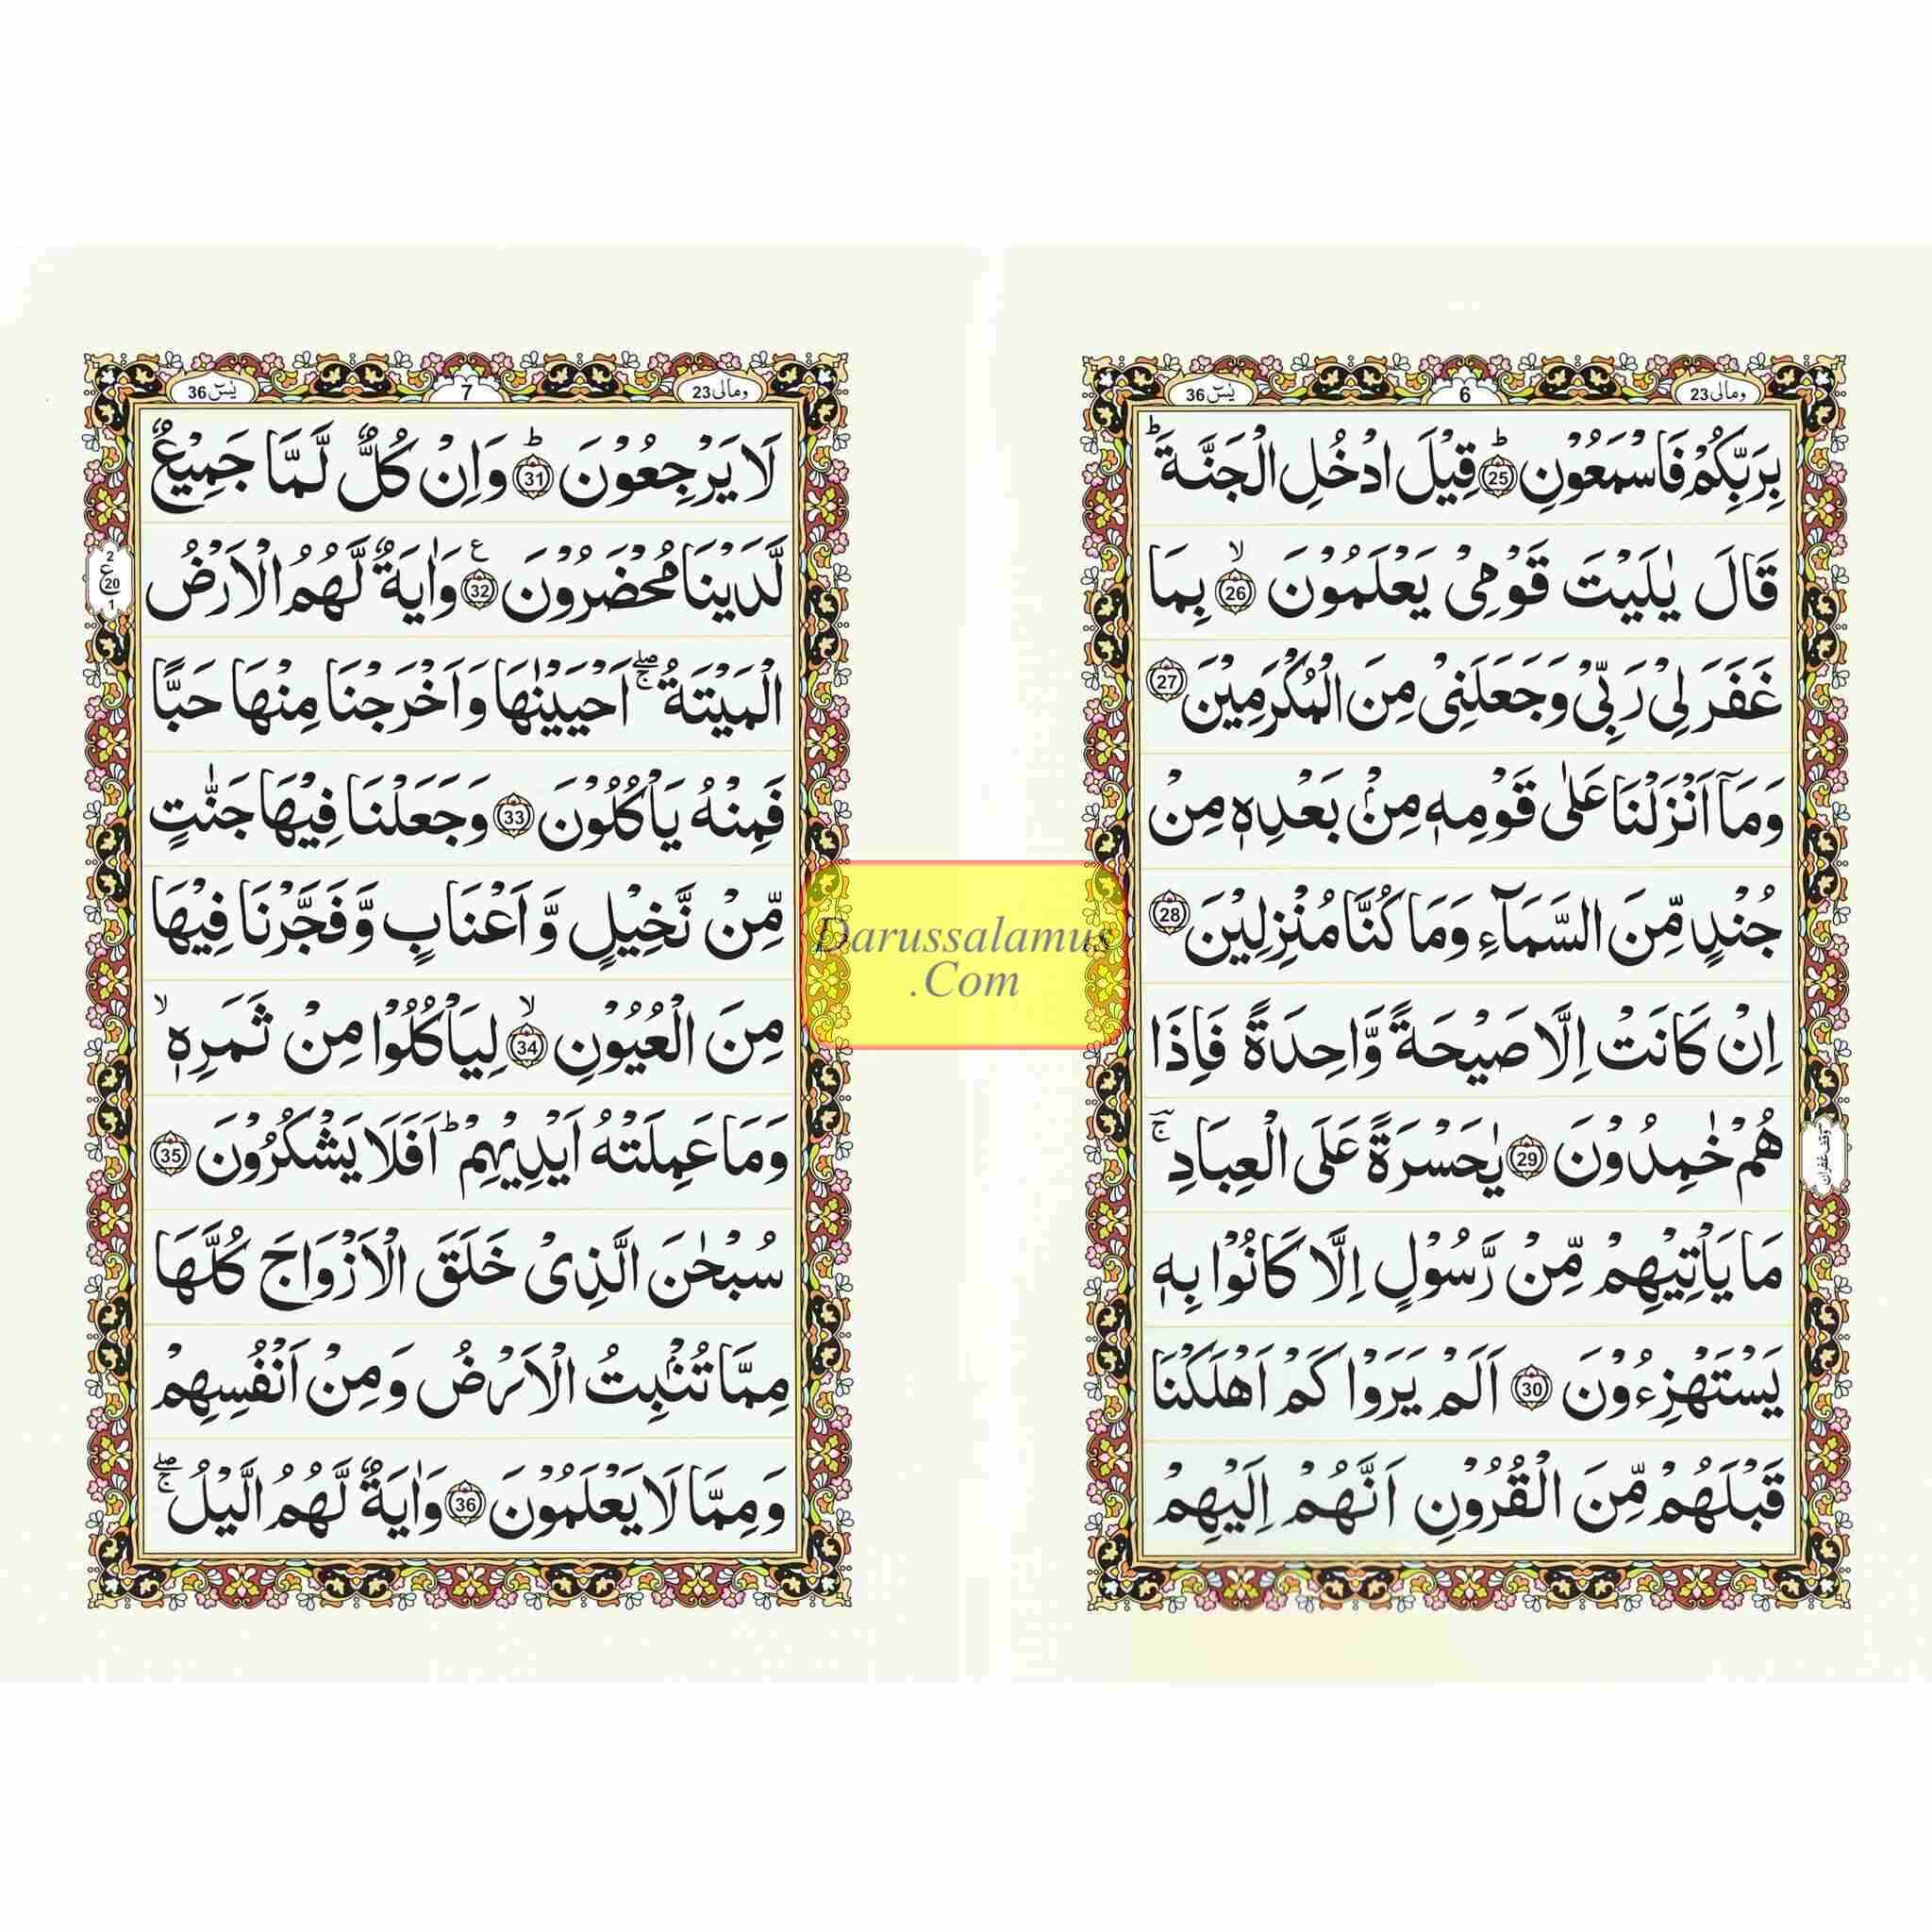 ومالی 23
6
یٰسٓ 36
بِرَبِّكُمْ فَاسْمَعُوْنِ ؕ 25 قِيْلَ ادْخُلِ الْجَنَّةَ ؕ
قَالَ يٰلَيْتَ قَوْمِيْ يَعْلَمُوْنَ ۙ 26 بِمَا
غَفَرَ لِيْ رَبِّيْ وَجَعَلَنِيْ مِنَ الْمُكْرَمِيْنَ 27
وَمَاۤ اَنْزَلْنَا عَلٰى قَوْمِهٖ مِنْۢ بَعْدِهٖ مِنْ
جُنْدٍ مِّنَ السَّمَآءِ وَمَا كُنَّا مُنْزِلِيْنَ 28
اِنْ كَانَتْ اِلَّا صَيْحَةً وَّاحِدَةً فَاِذَا
هُمْ خٰمِدُوْنَ 29 يٰحَسْرَةً عَلَى الْعِبَادِ ۚؔ
وقف غفران
مَا يَاْتِيْهِمْ مِّنْ رَّسُوْلٍ اِلَّا كَانُوْا بِهٖ
يَسْتَهْزِءُوْنَ 30 اَلَمْ يَرَوْا كَمْ اَهْلَكْنَا
قَبْلَهُمْ مِّنَ الْقُرُوْنِ اَنَّهُمْ اِلَيْهِمْ
ومالی 23
7
یٰسٓ 36
لَا يَرْجِعُوْنَ ؕ 31 وَاِنْ كُلٌّ لَّمَّا جَمِيْعٌ
لَّدَيْنَا مُحْضَرُوْنَ ۧ 32 وَاٰيَةٌ لَّهُمُ الْاَرْضُ
2
ع
20
1
الْمَيْتَةُ ۖۚ اَحْيَيْنٰهَا وَاَخْرَجْنَا مِنْهَا حَبًّا
فَمِنْهُ يَاْكُلُوْنَ 33 وَجَعَلْنَا فِيْهَا جَنّٰتٍ
مِّنْ نَّخِيْلٍ وَّاَعْنَابٍ وَّفَجَّرْنَا فِيْهَا
مِنَ الْعُيُوْنِ ۙ 34 لِيَاْكُلُوْا مِنْ ثَمَرِهٖ ۙ
وَمَا عَمِلَتْهُ اَيْدِيْهِمْ ؕ اَفَلَا يَشْكُرُوْنَ 35
سُبْحٰنَ الَّذِيْ خَلَقَ الْاَزْوَاجَ كُلَّهَا
مِمَّا تُنْۢبِتُ الْاَرْضُ وَمِنْ اَنْفُسِهِمْ
وَمِمَّا لَا يَعْلَمُوْنَ 36 وَاٰيَةٌ لَّهُمُ الَّيْلُ ۖۚ
Darussalamus
.Com